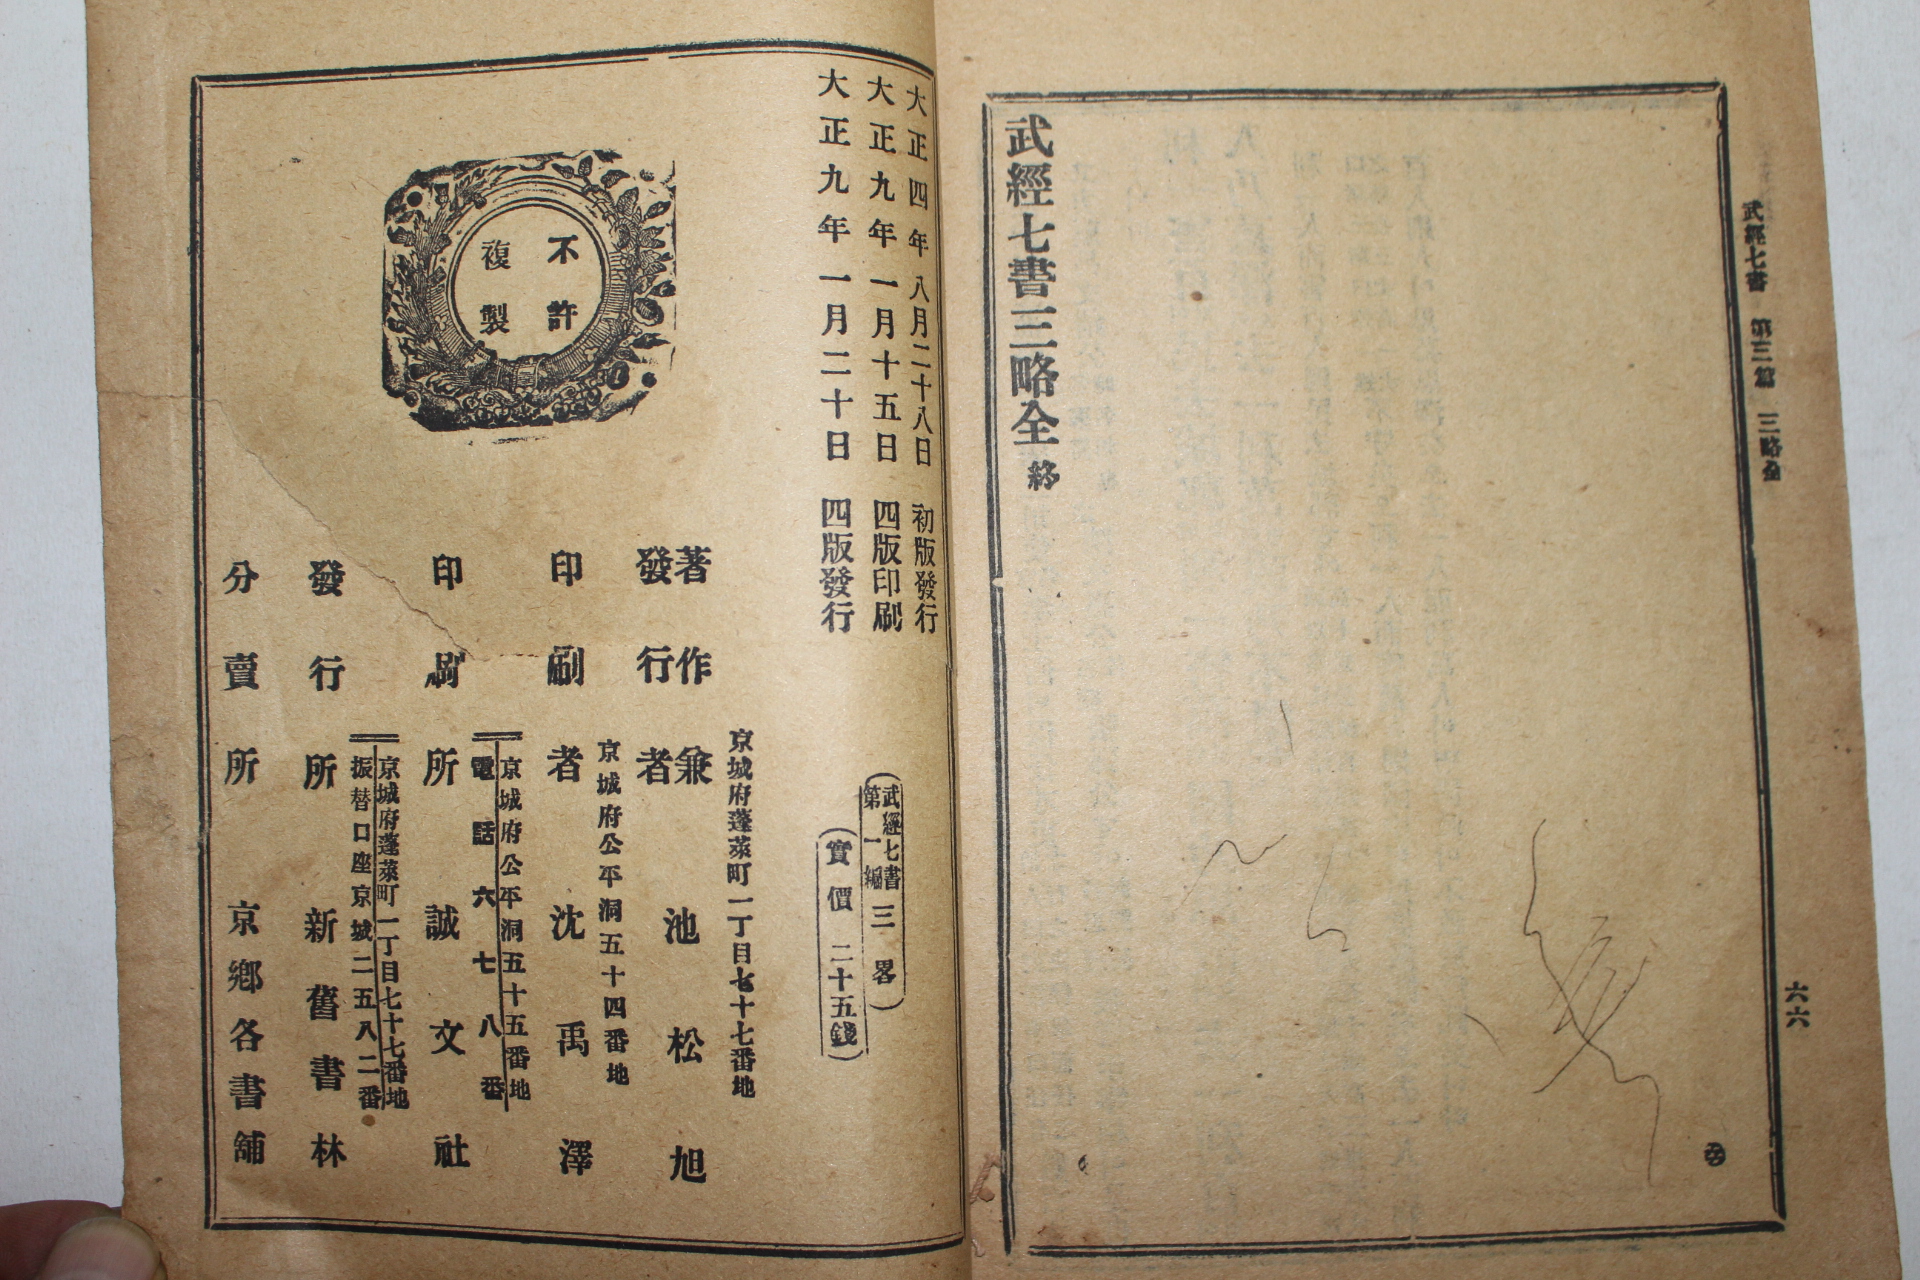 武經七書 第三篇 三略全
六六
武經七書三略全 終
大正四年八月二十八日 初版發行
大正九年一月十五日 四版印刷
大正九年一月二十日 四版發行
武經七書
第一編
三畧
實價 二十五錢
不許
複製
京城府蓬萊町一丁目七十七番地
著作兼
發行者
池松旭
京城府公平洞五十四番地
印刷者 沈禹澤
京城府公平洞五十五番地
電話六七八番
印刷所 誠文社
京城府蓬萊町一丁目七十七番地
振替口座京城二五八二番
發行所 新舊書林
分賣所 京鄉各書舖